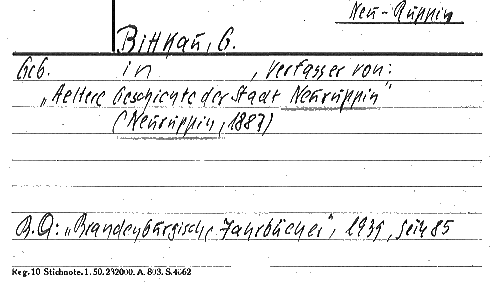 Neu-Ruppin
Bittkau, G.
Geb. in , Verfasser von:
"Aeltere Geschichte der Stadt Neuruppin"
(Neuruppin, 1887)
B.Q: "Brandenburgische Jahrbücher", 1939, Seite 85
Reg. 10 Stichnote. 1. 50. 232000. A. 803. S. 4662